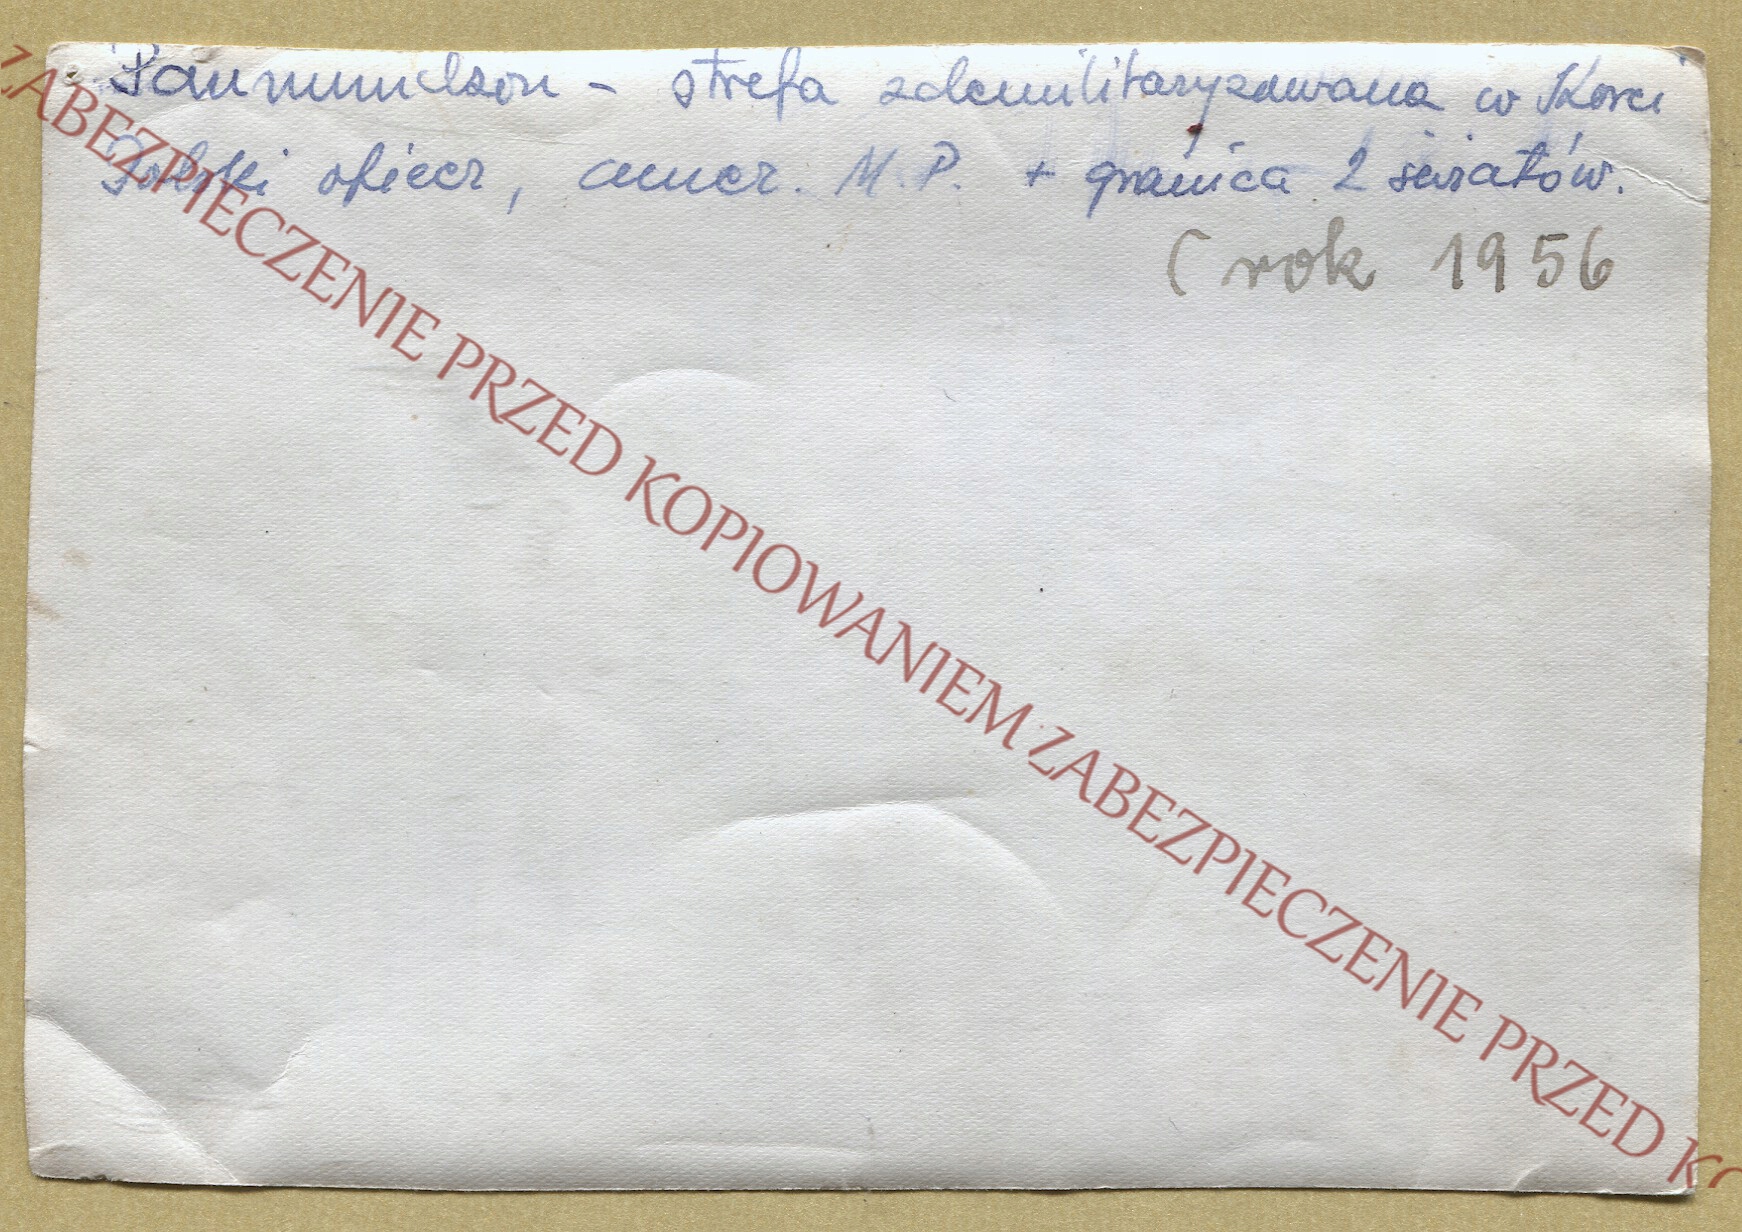 Panmundżon – strefa zdemilitaryzowana w Korei
Polski oficer, amer. M.P. + granica 2 światów.
( rok 1956
ZABEZPIECZENIE PRZED KOPIOWANIEM ZABEZPIECZENIE PRZED KO